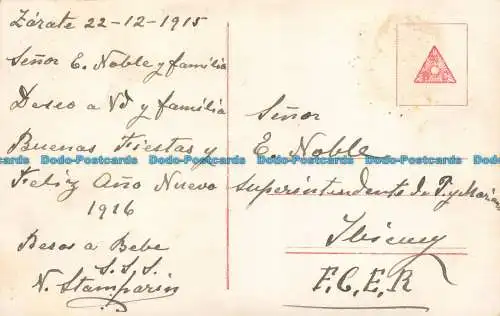 Zárate 22-12-1915
Señor E. Noble y familia
Deseo a Vd y familia
Buenas Fiestas y
Feliz Año Nuevo
1916
Besos a Bebe
S. S. S.
N. Stamparin
Señor
E. Noble
Superintendente de T. y Mov
Ibicuy
F.C.E.R
Dodo-Postcards Dodo-Postcards Dodo-Postcards Dodo-Postcards Dodo-Postcards